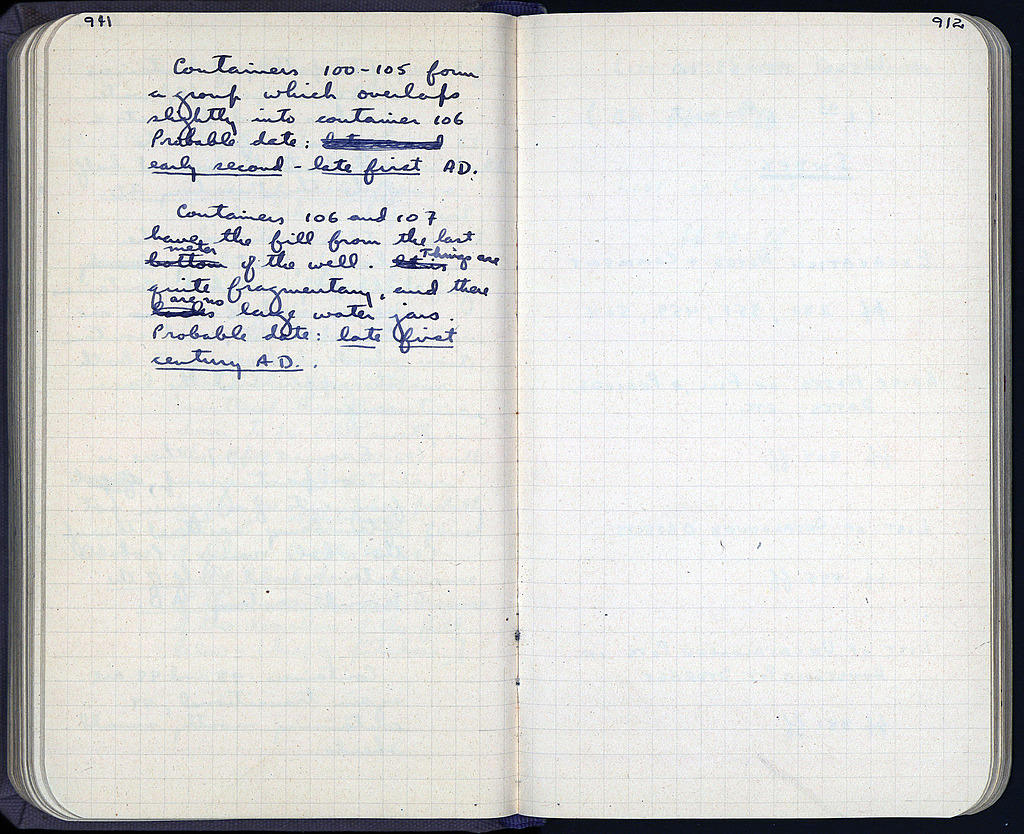 941
Containers 100-105 form
a group which overlaps
slightly into container 106
Probable date:
early second - late first AD.
Containers 106 and 107
have the fill from the last
meter
bottom of the well. Things are
quite fragmentary, and there
are no
lacks large water jars.
Probable date: late first
century AD..
912